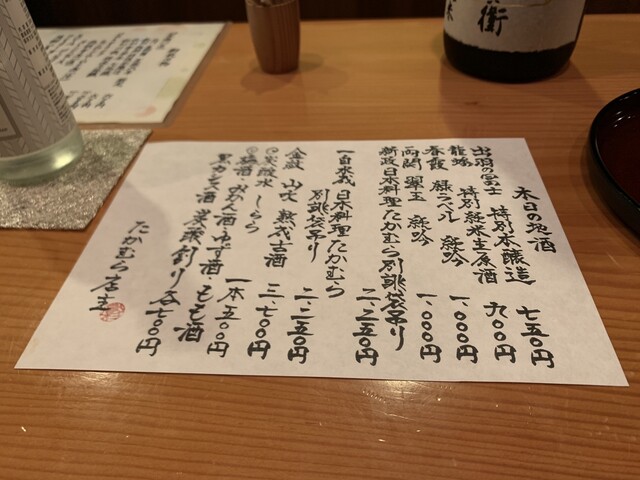 本日の地酒
出羽の冨士 特別本醸造 七五〇円
龍蟠 特別純米生原酒 九〇〇円
春霞 緑ラベル 純吟 一、〇〇〇円
両関 翠玉 純吟 一、〇〇〇円
新政 日本料理たかむら別誂袋吊り 二、二五〇円
一白水成 日本料理たかむら
別誂袋吊り 二、二五〇円
金紋 山吹 熟成古酒 三、七〇〇円
炭酸水 しらら 一本五〇〇円
梅酒・みかん酒・ゆず酒・もも酒
黒カシス酒 炭酸割り 各七〇〇円
たかむら店主
衛